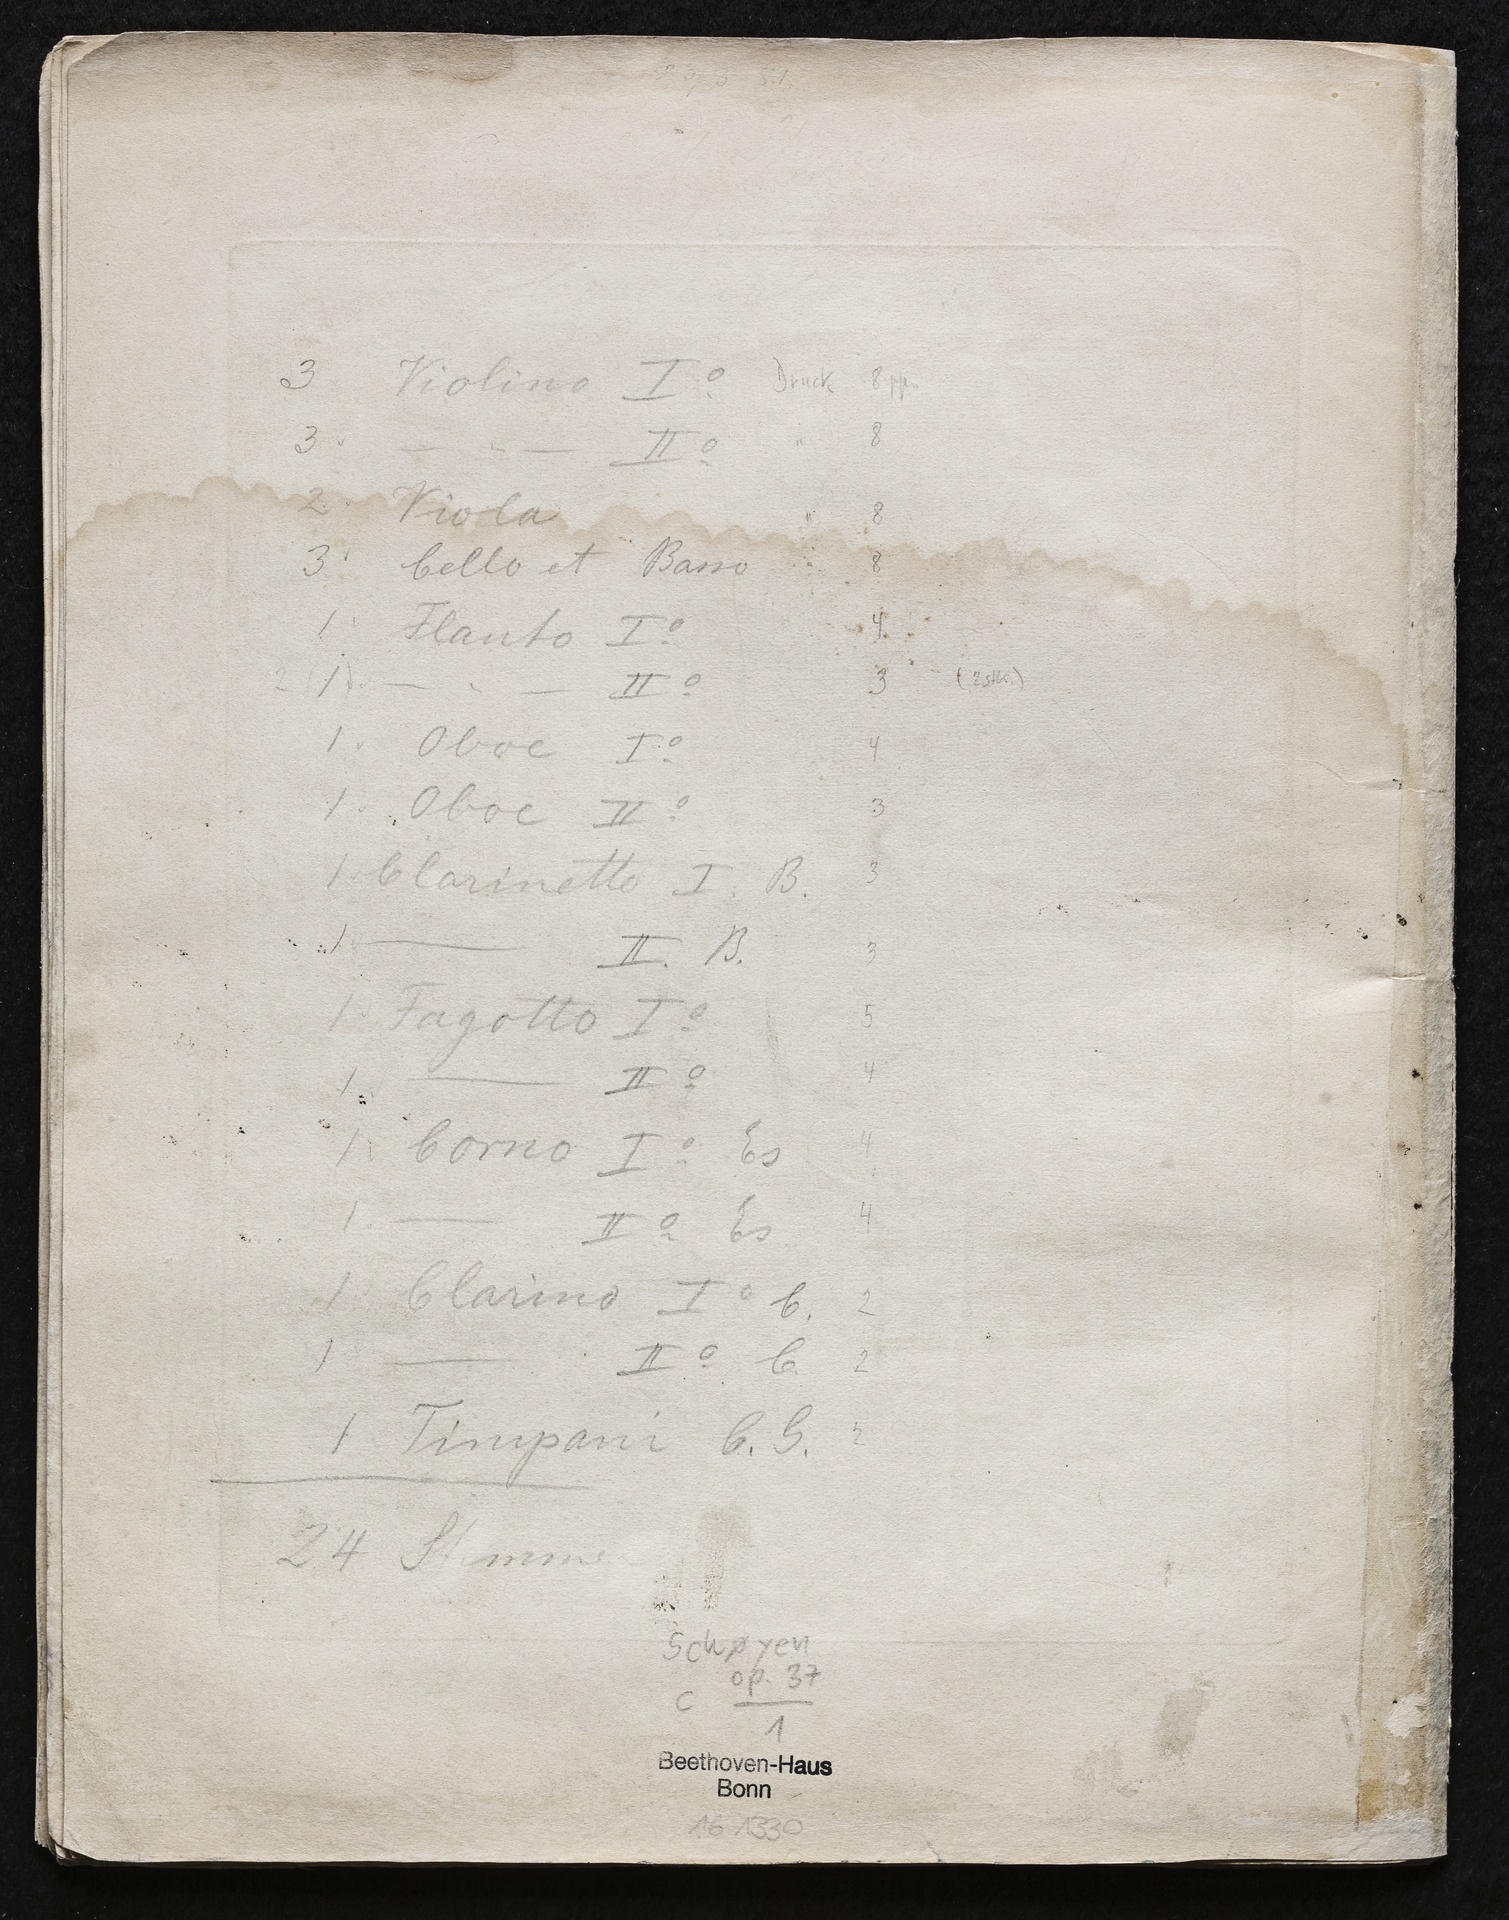 3 Violino Iº Druck 8 pp.
3 — " — IIº " 8
2 Viola " 8
3 Cello et Basso " 8
1 Flauto Iº 4
2 (1) — " — IIº 3 (2 stk.)
1 Oboe Iº 4
1 Oboe IIº 3
1 Clarinetto I. B. 3
1 — II. B. 3
1 Fagotto Iº 5
1 — IIº 4
1 Corno Iº Es 4
1 — IIº Es 4
1 Clarino Iº C. 2
1 — IIº C 2
1 Timpani C. G. 2
24 Stimmen
Schøyen
op. 37
C
1
Beethoven-Haus
Bonn
16 1330